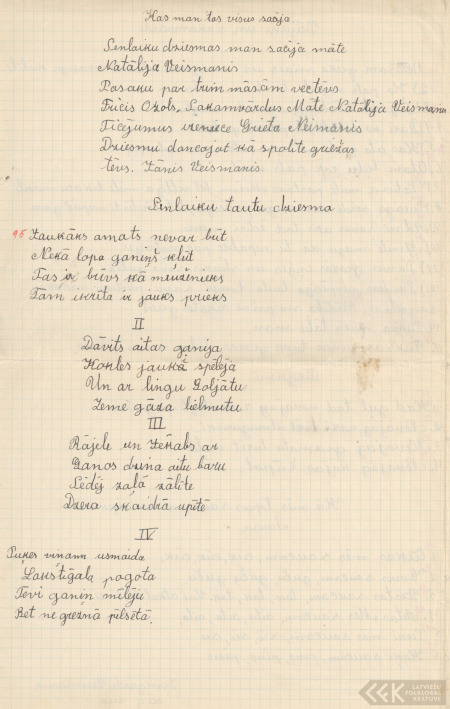 Kas man tos visus sacīja
Senlaiku dziesmas man sacīja māte
Natālija Veismanis
Pasaku par trim māsām vectēvs
Fricis Ozols, Sakamvārdus Māte Natālija Veismanis
Ticējumus vieniece Grieta Neimanis
Dziesmu dancojot kā spolīte griežas
tēvs. Žānis Veismanis.
Senlaiku tautu dziesma
95 Jaukāks amats nevar būt
Nekā lopa ganiņš kļūt
Tas ir brīvs kā mežinieks
Tam ikrīta ir jauks prieks
II
Dāvits aitas ganija
Kokles jaukā spēlēja
Un ar lingu Goljātu
Zeme gāza lielmutu
III
Rājele un Jēkabs ar
Ganos dzina aitu baru
Sēdēj zaļā zālīte
Dzera skaidrā upītē
IV
Puķes viņam usmaida
Lakstīgala pogota
Tevi ganiņ mīlēju
Bet ne grežnā pilsētā.
LATVIEŠU
FOLKLORAS
KRĀTUVE